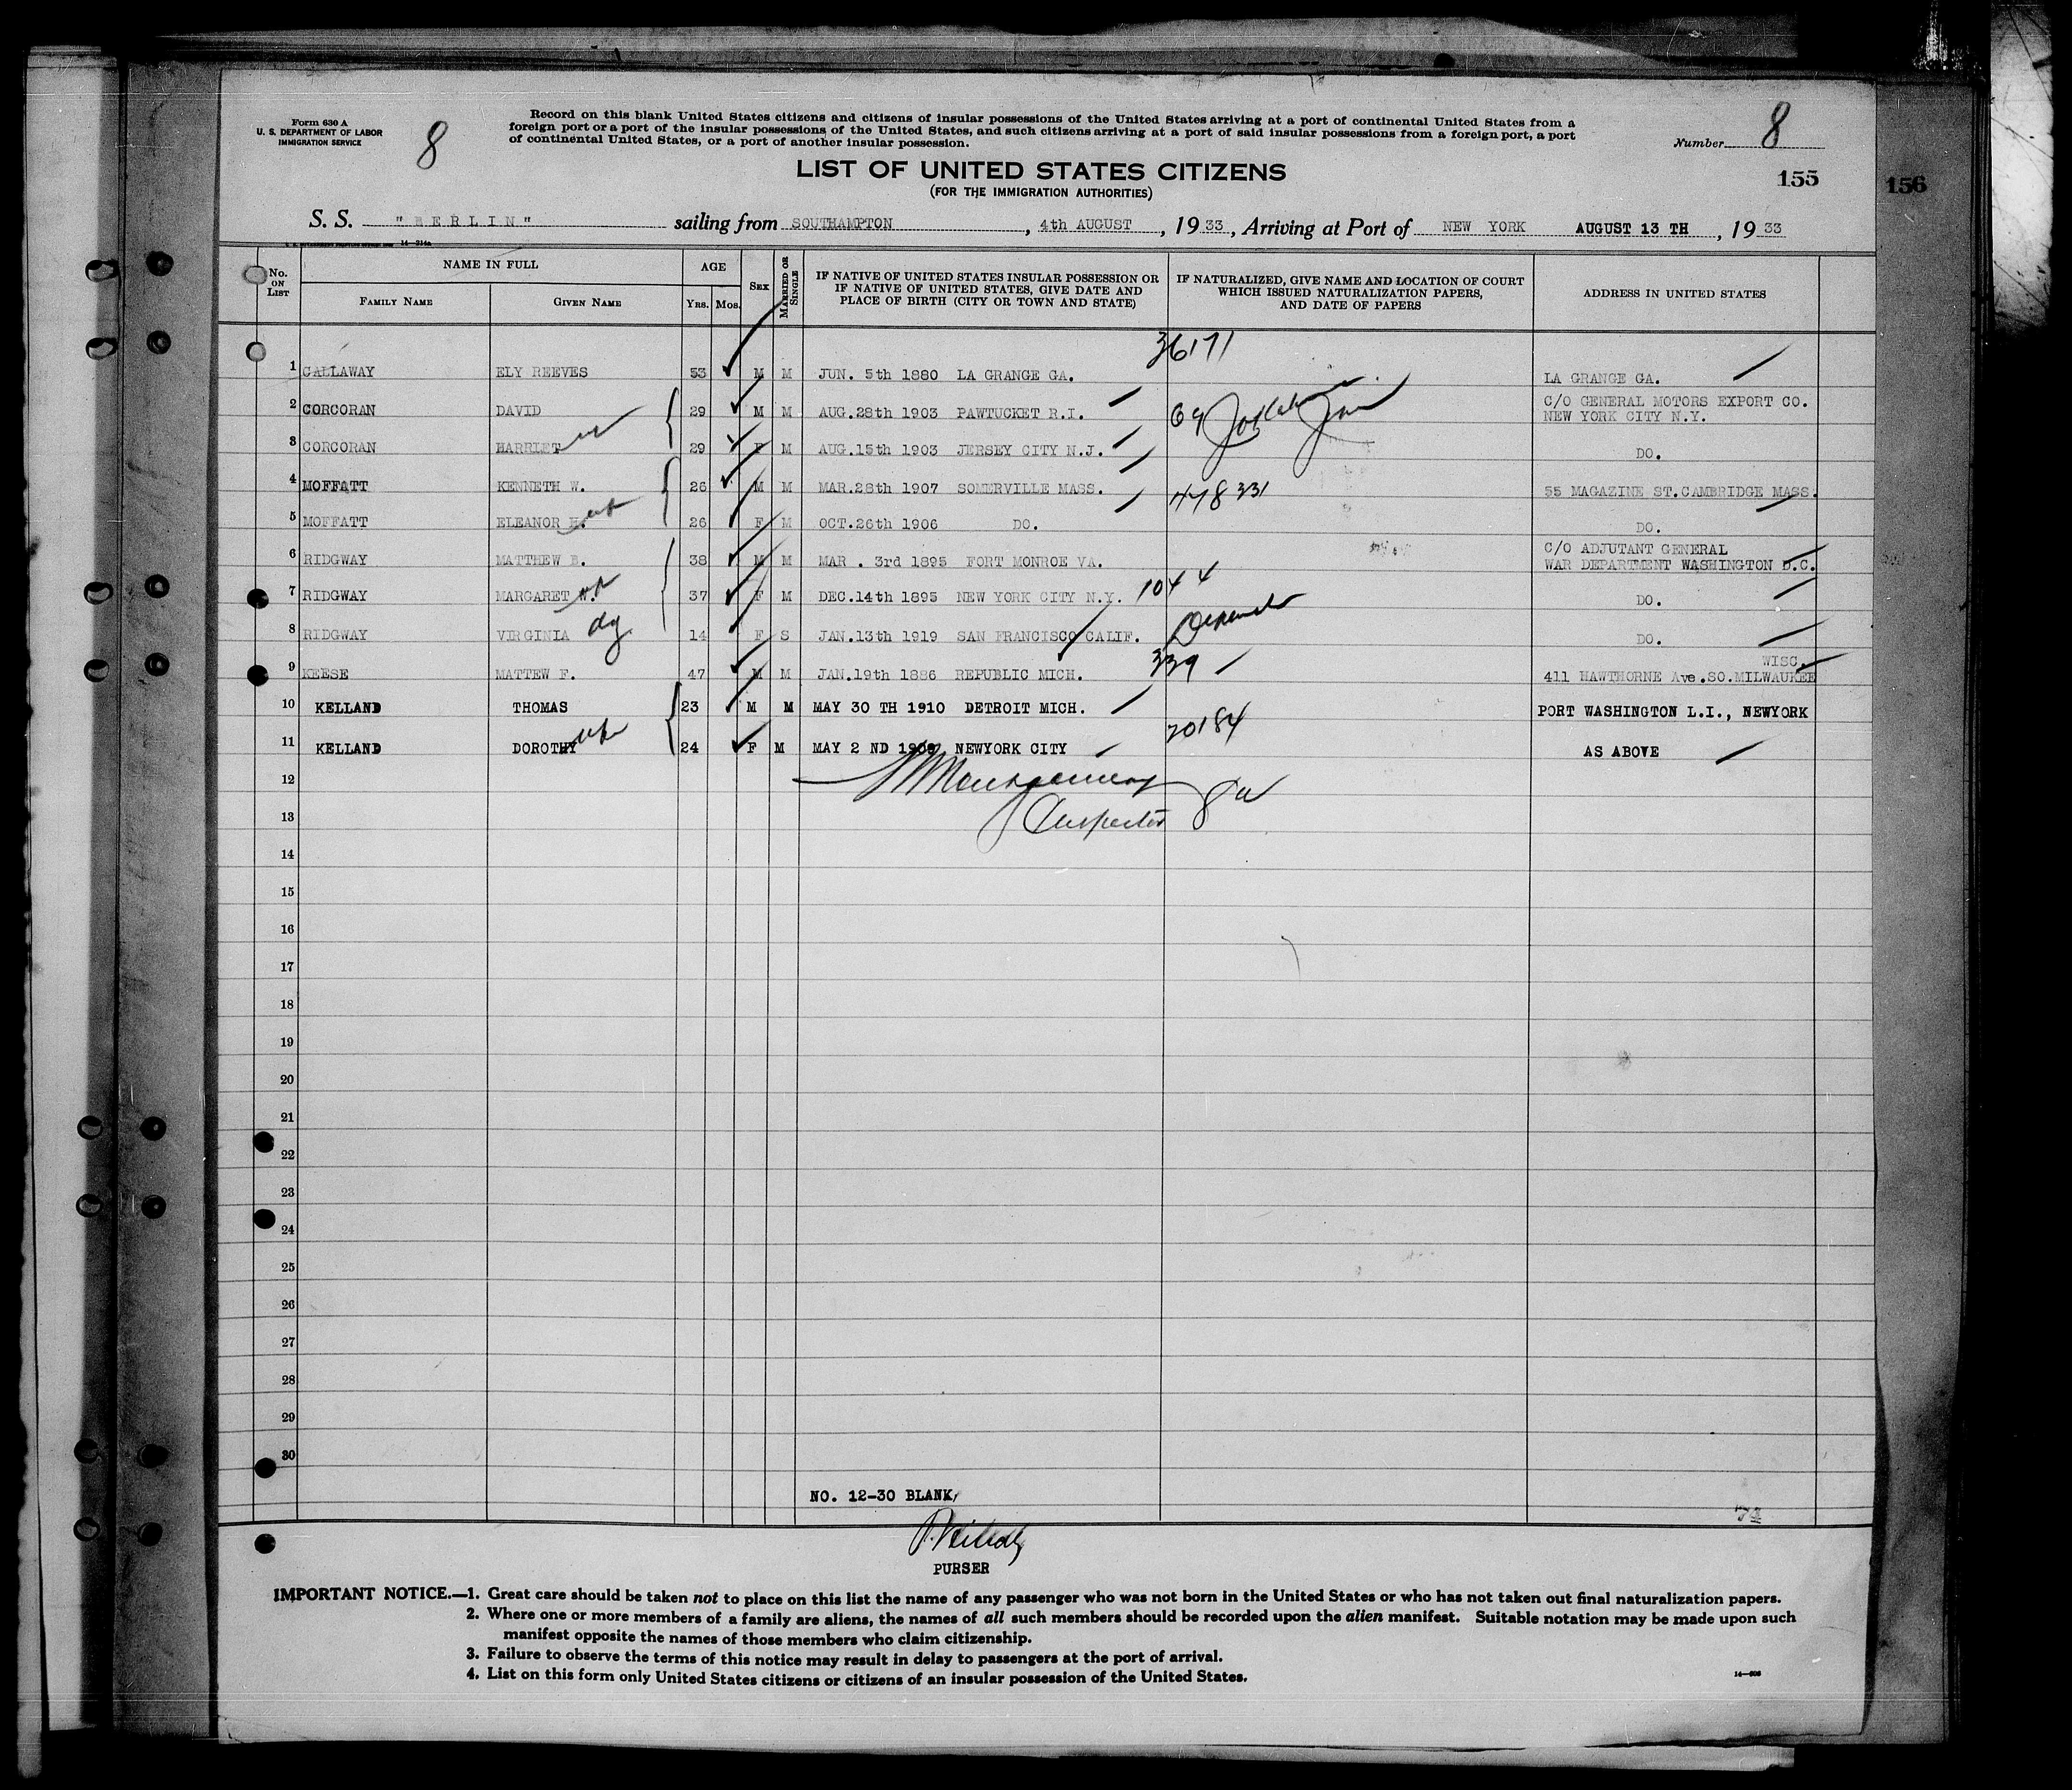 Form 630 A
U. S. DEPARTMENT OF LABOR
IMMIGRATION SERVICE
8
Record on this blank United States citizens and citizens of insular possessions of the United States arriving at a port of continental United States from a
foreign port or a port of the insular possessions of the United States, and such citizens arriving at a port of said insular possessions from a foreign port, a port
of continental United States, or a port of another insular possession.
Number 8
LIST OF UNITED STATES CITIZENS
(FOR THE IMMIGRATION AUTHORITIES)
155
156
S. S. "BERLIN" sailing from SOUTHAMPTON, 4th AUGUST, 1933, Arriving at Port of NEW YORK AUGUST 13 TH, 1933
No. ON LIST
NAME IN FULL
FAMILY NAME
GIVEN NAME
AGE
Yrs. Mos.
SEX
MARRIED OR SINGLE
IF NATIVE OF UNITED STATES INSULAR POSSESSION OR
IF NATIVE OF UNITED STATES, GIVE DATE AND
PLACE OF BIRTH (CITY OR TOWN AND STATE)
IF NATURALIZED, GIVE NAME AND LOCATION OF COURT
WHICH ISSUED NATURALIZATION PAPERS,
AND DATE OF PAPERS
ADDRESS IN UNITED STATES
36171
1 CALLAWAY ELY REEVES 53 M M JUN. 5th 1880 LA GRANGE GA. LA GRANGE GA.
2 CORCORAN DAVID 29 M M AUG.28th 1903 PAWTUCKET R.I. 69 C/O GENERAL MOTORS EXPORT CO.
NEW YORK CITY N.Y.
3 CORCORAN HARRIET 29 F M AUG.15th 1903 JERSEY CITY N.J. DO.
4 MOFFATT KENNETH W. 26 M M MAR.28th 1907 SOMERVILLE MASS. 478331 55 MAGAZINE ST.CAMBRIDGE MASS.
5 MOFFATT ELEANOR H. 26 F M OCT.26th 1906 DO. DO.
6 RIDGWAY MATTHEW B. 38 M M MAR . 3rd 1895 FORT MONROE VA. C/O ADJUTANT GENERAL
WAR DEPARTMENT WASHINGTON D.C.
7 RIDGWAY MARGARET W. 37 F M DEC.14th 1895 NEW YORK CITY N.Y. 1044 DO.
8 RIDGWAY VIRGINIA 14 F S JAN.13th 1919 SAN FRANCISCO CALIF. DO.
WISC.
9 KEESE MATTEW F. 47 M M JAN.19th 1886 REPUBLIC MICH. 339 411 HAWTHORNE Ave.SO.MILWAUKEE
10 KELLAND THOMAS 23 M M MAY 30 TH 1910 DETROIT MICH. PORT WASHINGTON L.I., NEWYORK
11 KELLAND DOROTHY 24 F M MAY 2 ND 1909 NEWYORK CITY 20184 AS ABOVE
12
Inspector
13
14
15
16
17
18
19
20
21
22
23
24
25
26
27
28
29
30
NO. 12-30 BLANK
PURSER
IMPORTANT NOTICE.—1. Great care should be taken not to place on this list the name of any passenger who was not born in the United States or who has not taken out final naturalization papers.
2. Where one or more members of a family are aliens, the names of all such members should be recorded upon the alien manifest. Suitable notation may be made upon such
manifest opposite the names of those members who claim citizenship.
3. Failure to observe the terms of this notice may result in delay to passengers at the port of arrival.
4. List on this form only United States citizens or citizens of an insular possession of the United States.